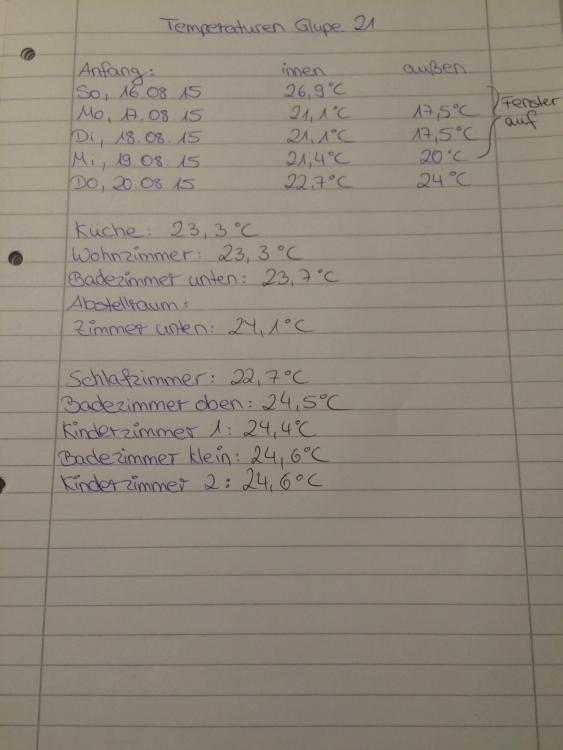 Temperaturen Glupe 21
Anfang: innen außen
So, 16.08 15 26,9°C
Mo, 17.08 15 21,1°C 17,5°C
Di, 18.08 15 21,1°C 17,5°C
Mi, 19.08 15 21,4°C 20°C
Do, 20.08 15 22,7°C 24°C
Fenster
auf
Küche: 23,3°C
Wohnzimmer: 23,3°C
Badezimmer unten: 23,7°C
Abstellraum:
Zimmer unten: 24,1°C
Schlafzimmer: 22,7°C
Badezimmer oben: 24,5°C
Kinderzimmer 1: 24,4°C
Badezimmer klein: 24,6°C
Kinderzimmer 2: 24,6°C